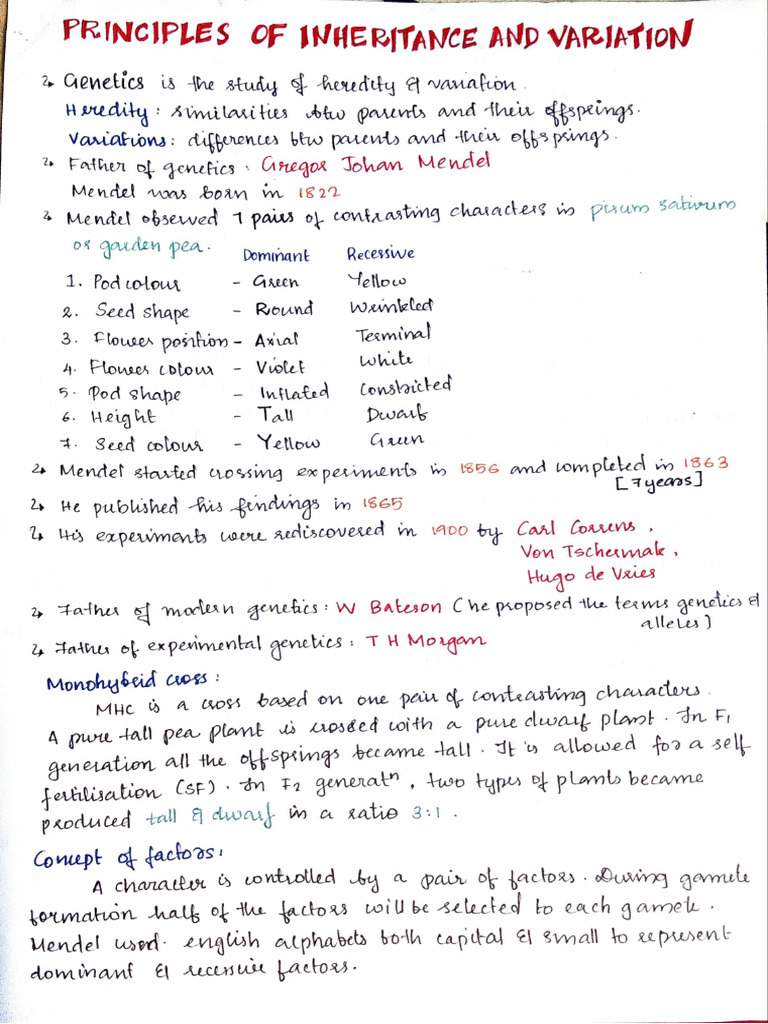 PRINCIPLES OF INHERITANCE AND VARIATION
Genetics is the study of heredity & variation.
Heredity : similarities btw parents and their offsprings.
Variations : differences btw parents and their offsprings.
Father of genetics : Gregor Johan Mendel
Mendel was born in 1822
Mendel observed 7 pairs of contrasting characters in pisum sativum
or garden pea.
Dominant Recessive
1. Pod colour - Green Yellow
2. Seed shape - Round Wrinkled
3. Flower position - Axial Terminal
4. Flower colour - Violet White
5. Pod shape - Inflated Constricted
6. Height - Tall Dwarf
7. Seed colour - Yellow Green
Mendel started crossing experiments in 1856 and completed in 1863
[7 years]
He published his findings in 1865
His experiments were rediscovered in 1900 by Carl Correns,
Von Tschermak,
Hugo de Vries
Father of modern genetics : W Bateson (he proposed the terms genetics &
alleles]
Father of experimental genetics : T H Morgan
Monohybrid cross :
MHC is a cross based on one pair of contrasting characters.
A pure tall pea plant is crossed with a pure dwarf plant. In F1
generation all the offsprings became tall. It is allowed for a self
fertilisation (SF). In F2 generatn, two types of plants became
produced tall & dwarf in a ratio 3:1.
Concept of factors :
A character is controlled by a pair of factors. During gamete
formation half of the factors will be selected to each gamete.
Mendel used english alphabets both capital & small to represent
dominant & recessive factors.